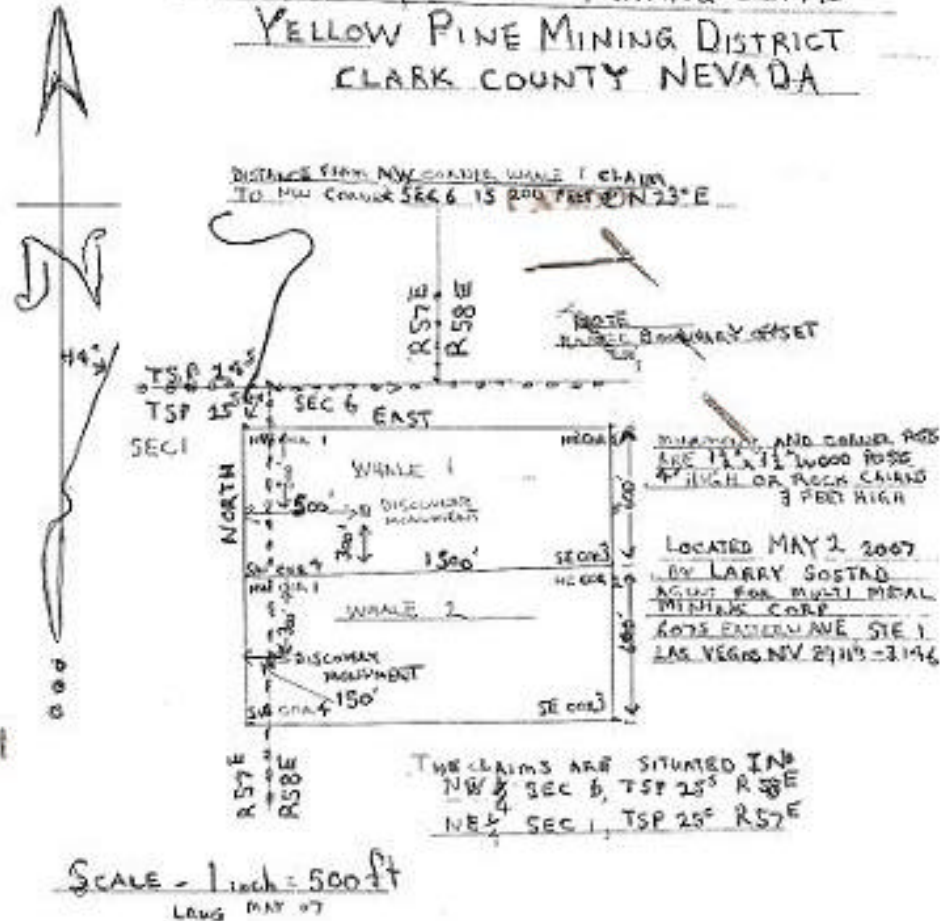 YELLOW PINE MINING DISTRICT
CLARK COUNTY NEVADA
DISTANCE FROM NW CORNER WHALE 1 CLAIM
TO NW CORNER SEC 6 IS 200 FEET @ N 23° E
N
R57E
R58E
NOTE
BOUNDARY OFFSET
TSP
TSP 25
SEC 6
EAST
SEC 1
NORTH
NW COR 1
NE COR
WHALE 1
500'
DISCOVERY
MONUMENT
300'
1500'
SW COR 4
SE COR 3
600'
NW COR 1
NE COR
WHALE 2
300'
DISCOVERY
MONUMENT
150'
SW COR 4
SE COR 3
600'
AND CORNER POSTS
ARE WOOD POSTS
4' HIGH OR ROCK CAIRNS
3 FEET HIGH
LOCATED MAY 2 2007
BY LARRY SOSTAD
AGENT FOR MULTI METAL
MINING CORP
EASTERN AVE STE 1
LAS VEGAS NV
R57E
R58E
THE CLAIMS ARE SITUATED IN
NW 1/4 SEC 6, TSP 25S R58E
NE 1/4 SEC 1, TSP 25S R57E
SCALE - 1 inch = 500 ft
MAY 07